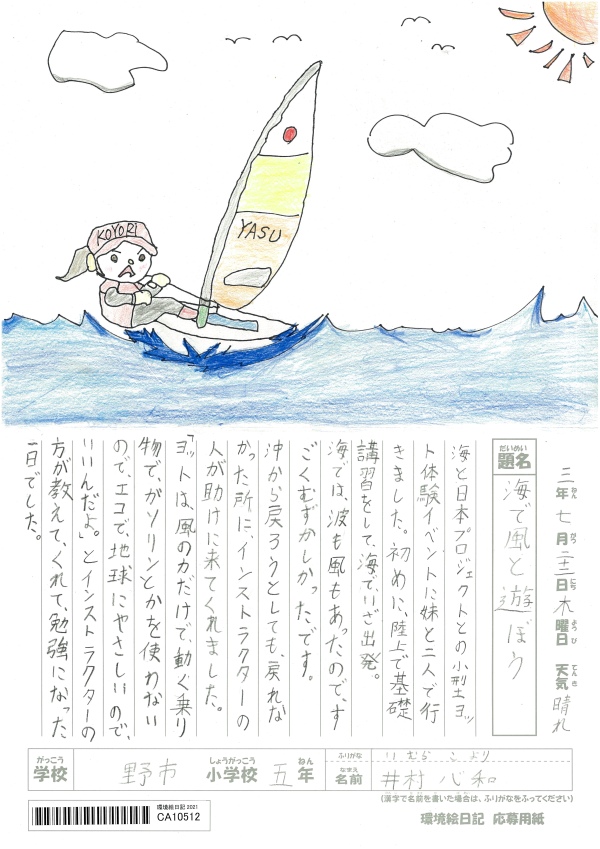 KOYORI
YASU
三年七月二十二日木曜日 天気晴れ
ねん がつ にち ようび てんき
だいめい
題名 海で風と遊ぼう
海と日本プロジェクトとの小型ヨッ
ト体験イベントに妹と二人で行
きました。初めに、陸上で基礎
講習をして、海でいざ出発。
海では、波も風もあったのです
ごくむずかしかったです。
沖から戻ろうとしても、戻れな
かった所に、インストラクターの
人が助けに来てくれました。
「ヨットは、風の力だけで、動く乗り
物で、ガソリンとかを使わない
ので、エコで、地球にやさしいので、
いいんだよ。」とインストラクターの
方が教えて、くれて、勉強になった
一日でした。
がっこう しょうがっこう ねん
学校 野市 小学校 五年
ふりがな いむら こより
なまえ
名前 井村 心和
(漢字で名前を書いた場合は、ふりがなをふってください)
環境絵日記 2021
CA10512
環境絵日記 応募用紙